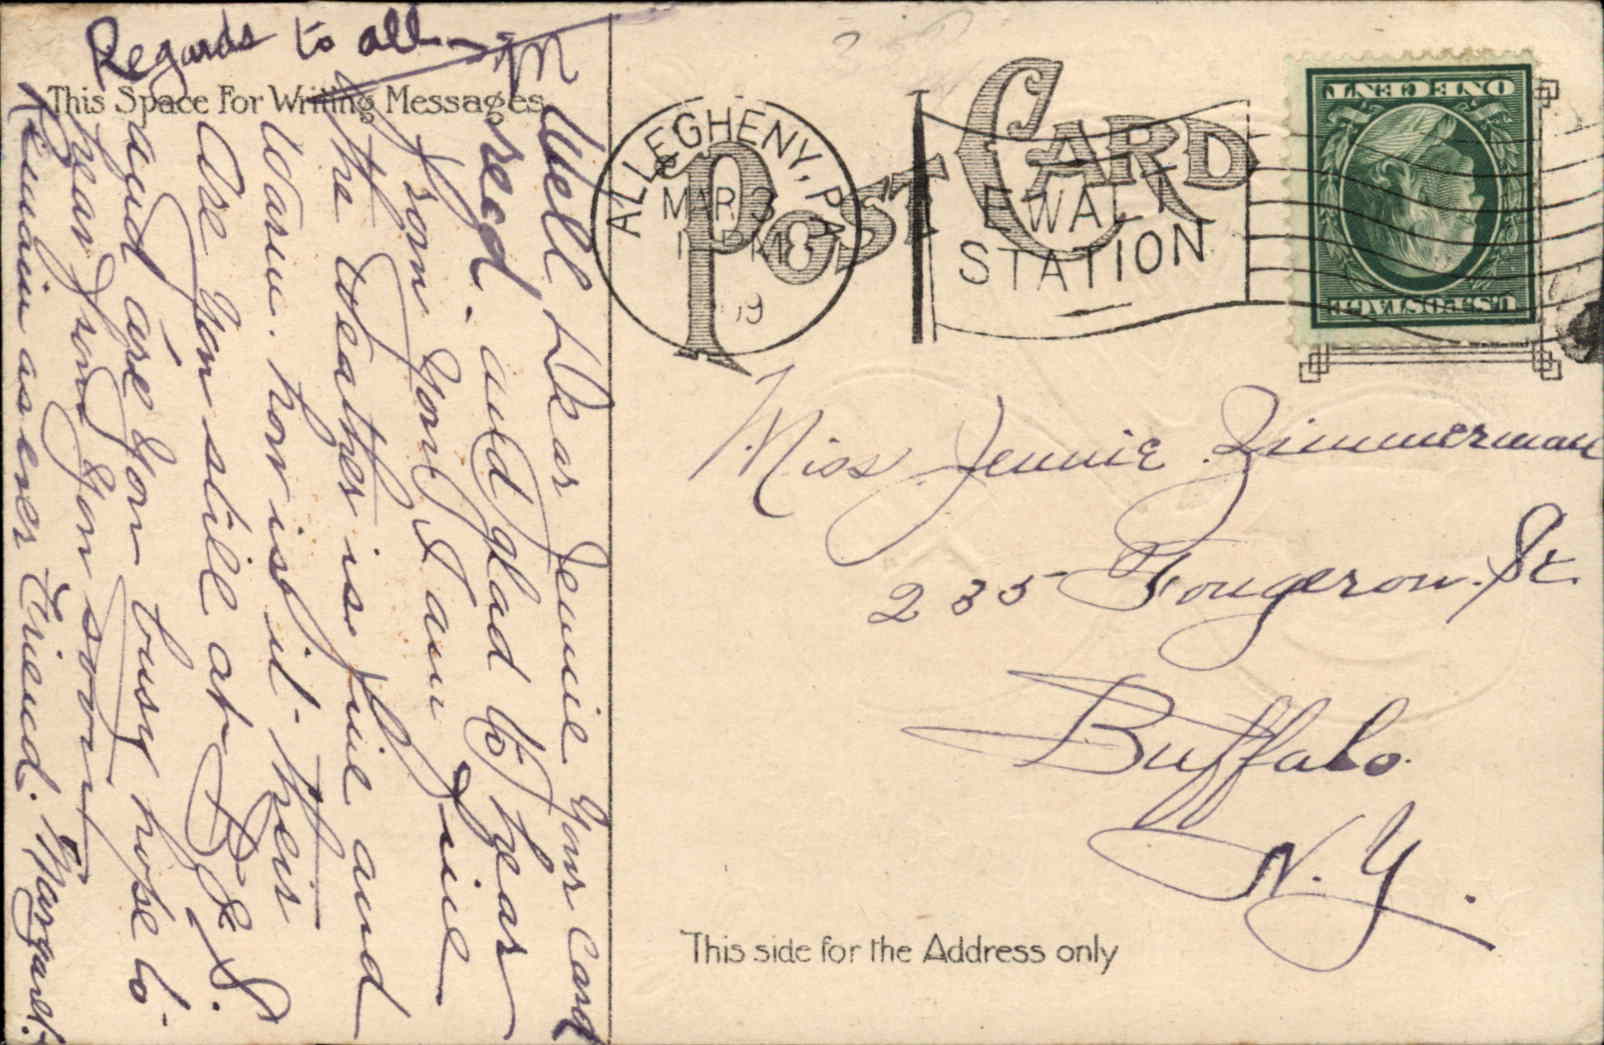 Regards to all - M
This Space For Writing Messages
Well Dear Jennie Your Card
recd. and glad to hear
from you I am fine
the Weather is fine and
Warm. how is it their
Are you still at B & S.
and are you busy hope to
hear from you soon
Remain as ever Friend. Margaret.
POST CARD
ALLEGHENY, PA
MAR 3
19
STATION
ONE CENT
U.S. POSTAGE
Miss Jennie Zimmerman
235 Fougeron St.
Buffalo.
N. Y.
This side for the Address only